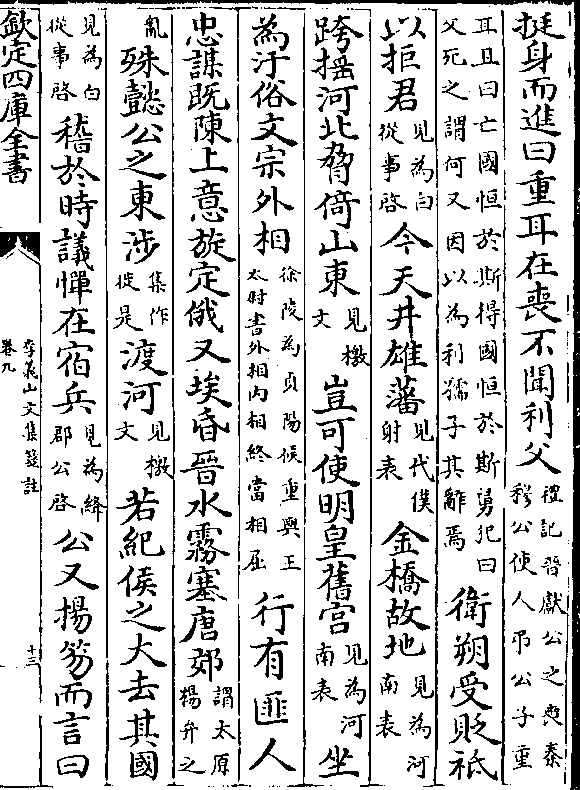 挺身而進曰重耳在喪不聞利父禮記晉獻公之喪秦穆公使人弔公子重
耳且曰亡國恒於斯得國恒於斯舅犯曰父死之謂何又因以為利孺子其辭焉衛朔受貶祇
以拒君見為白從事啓今天井雄藩見代僕射表金橋故地見為河南表
跨搖河北脅倚山東見檄文豈可使明皇舊宮見為河南表坐
為汙俗文宗外相徐陵為貞陽侯重與王太尉書外相内相終當相屈行有匪人
忠謀既陳上意旋定俄又埃昏晉水霧塞唐郊謂太原楊弁之
亂殊懿公之東涉集作徙是渡河見檄文若紀侯之大去其國
見為白從事啓稽於時議憚在宿兵見為絳郡公啓公又揚笏而言曰
欽定四庫全書
李義山文集箋註
卷九
十三